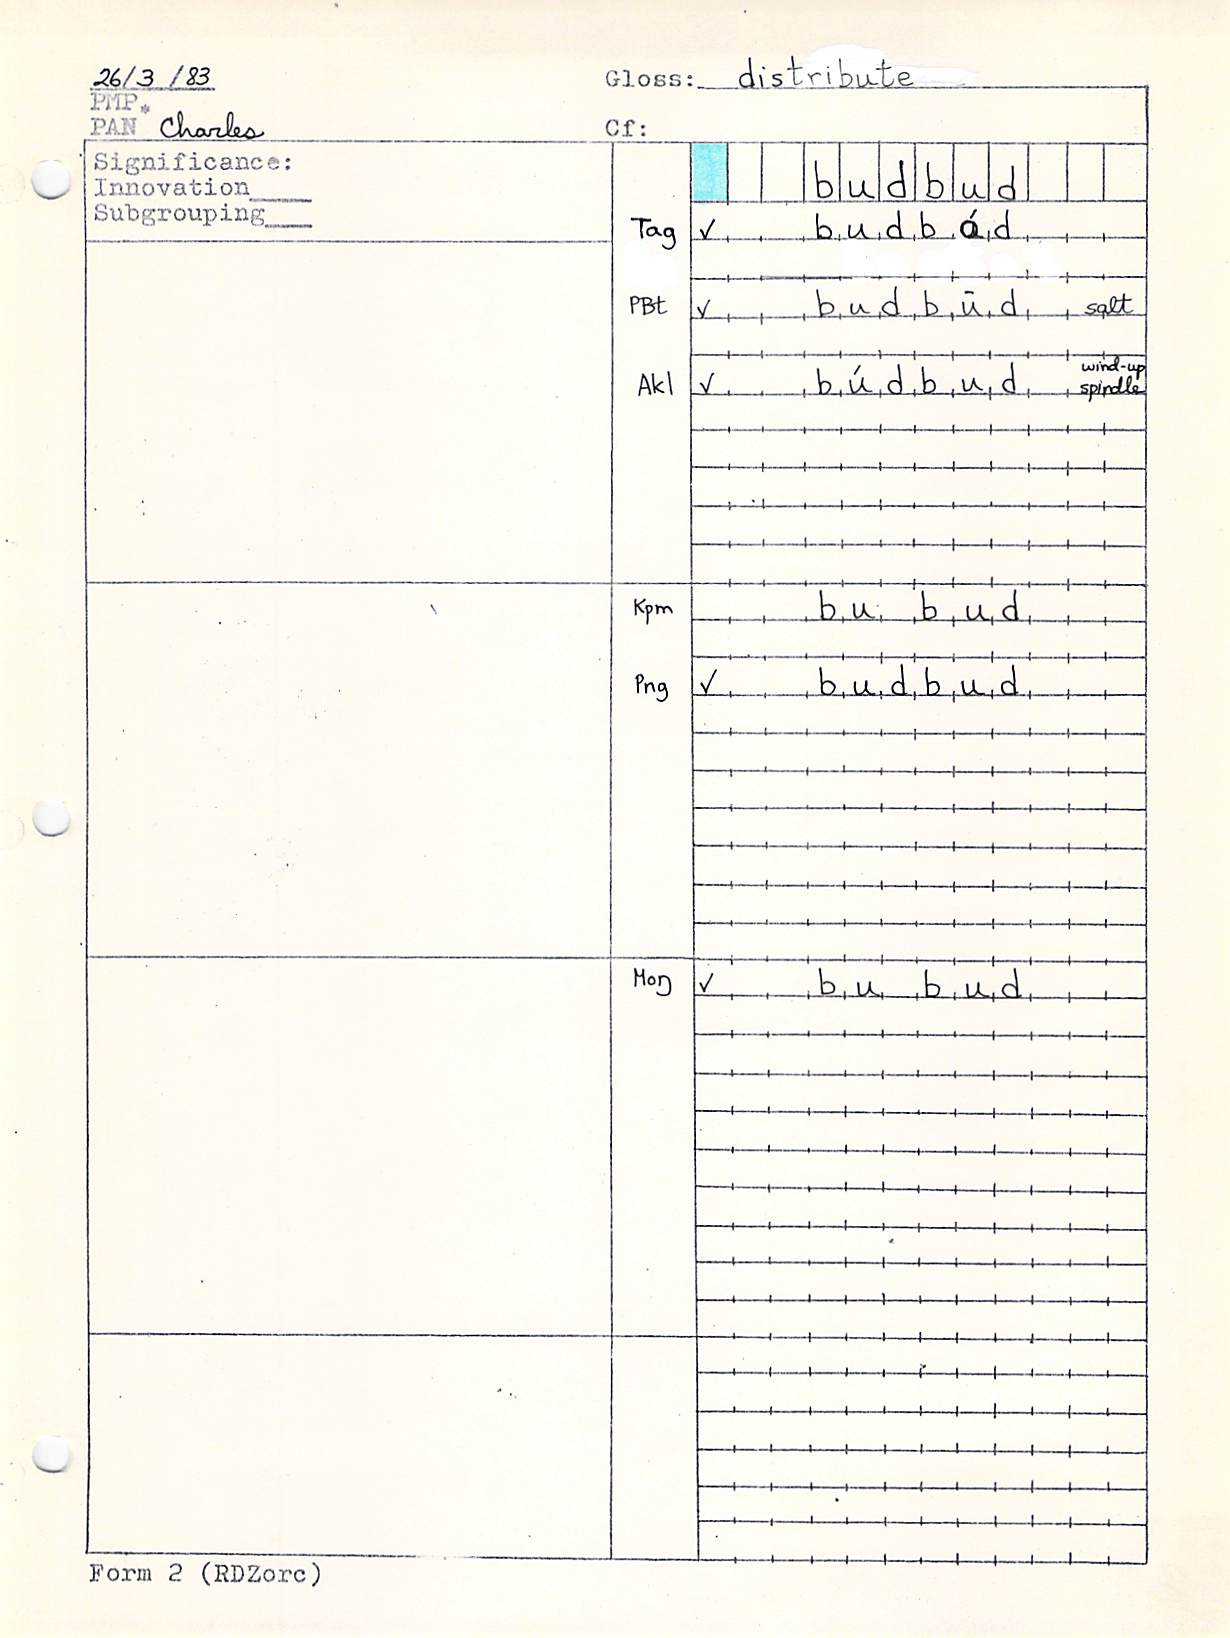 26/3/83 Gloss: distribute
PMP*
PAN Charles Cf:
Significance:
Innovation____
Subgrouping____
budbud
Tag ✓ budbád
PBt ✓ budbūd salt
Akl ✓ búdbud wind-up spindle
Kpm bu bud
Png ✓ budbud
Moŋ ✓ bu bud
Form 2 (RDZorc)